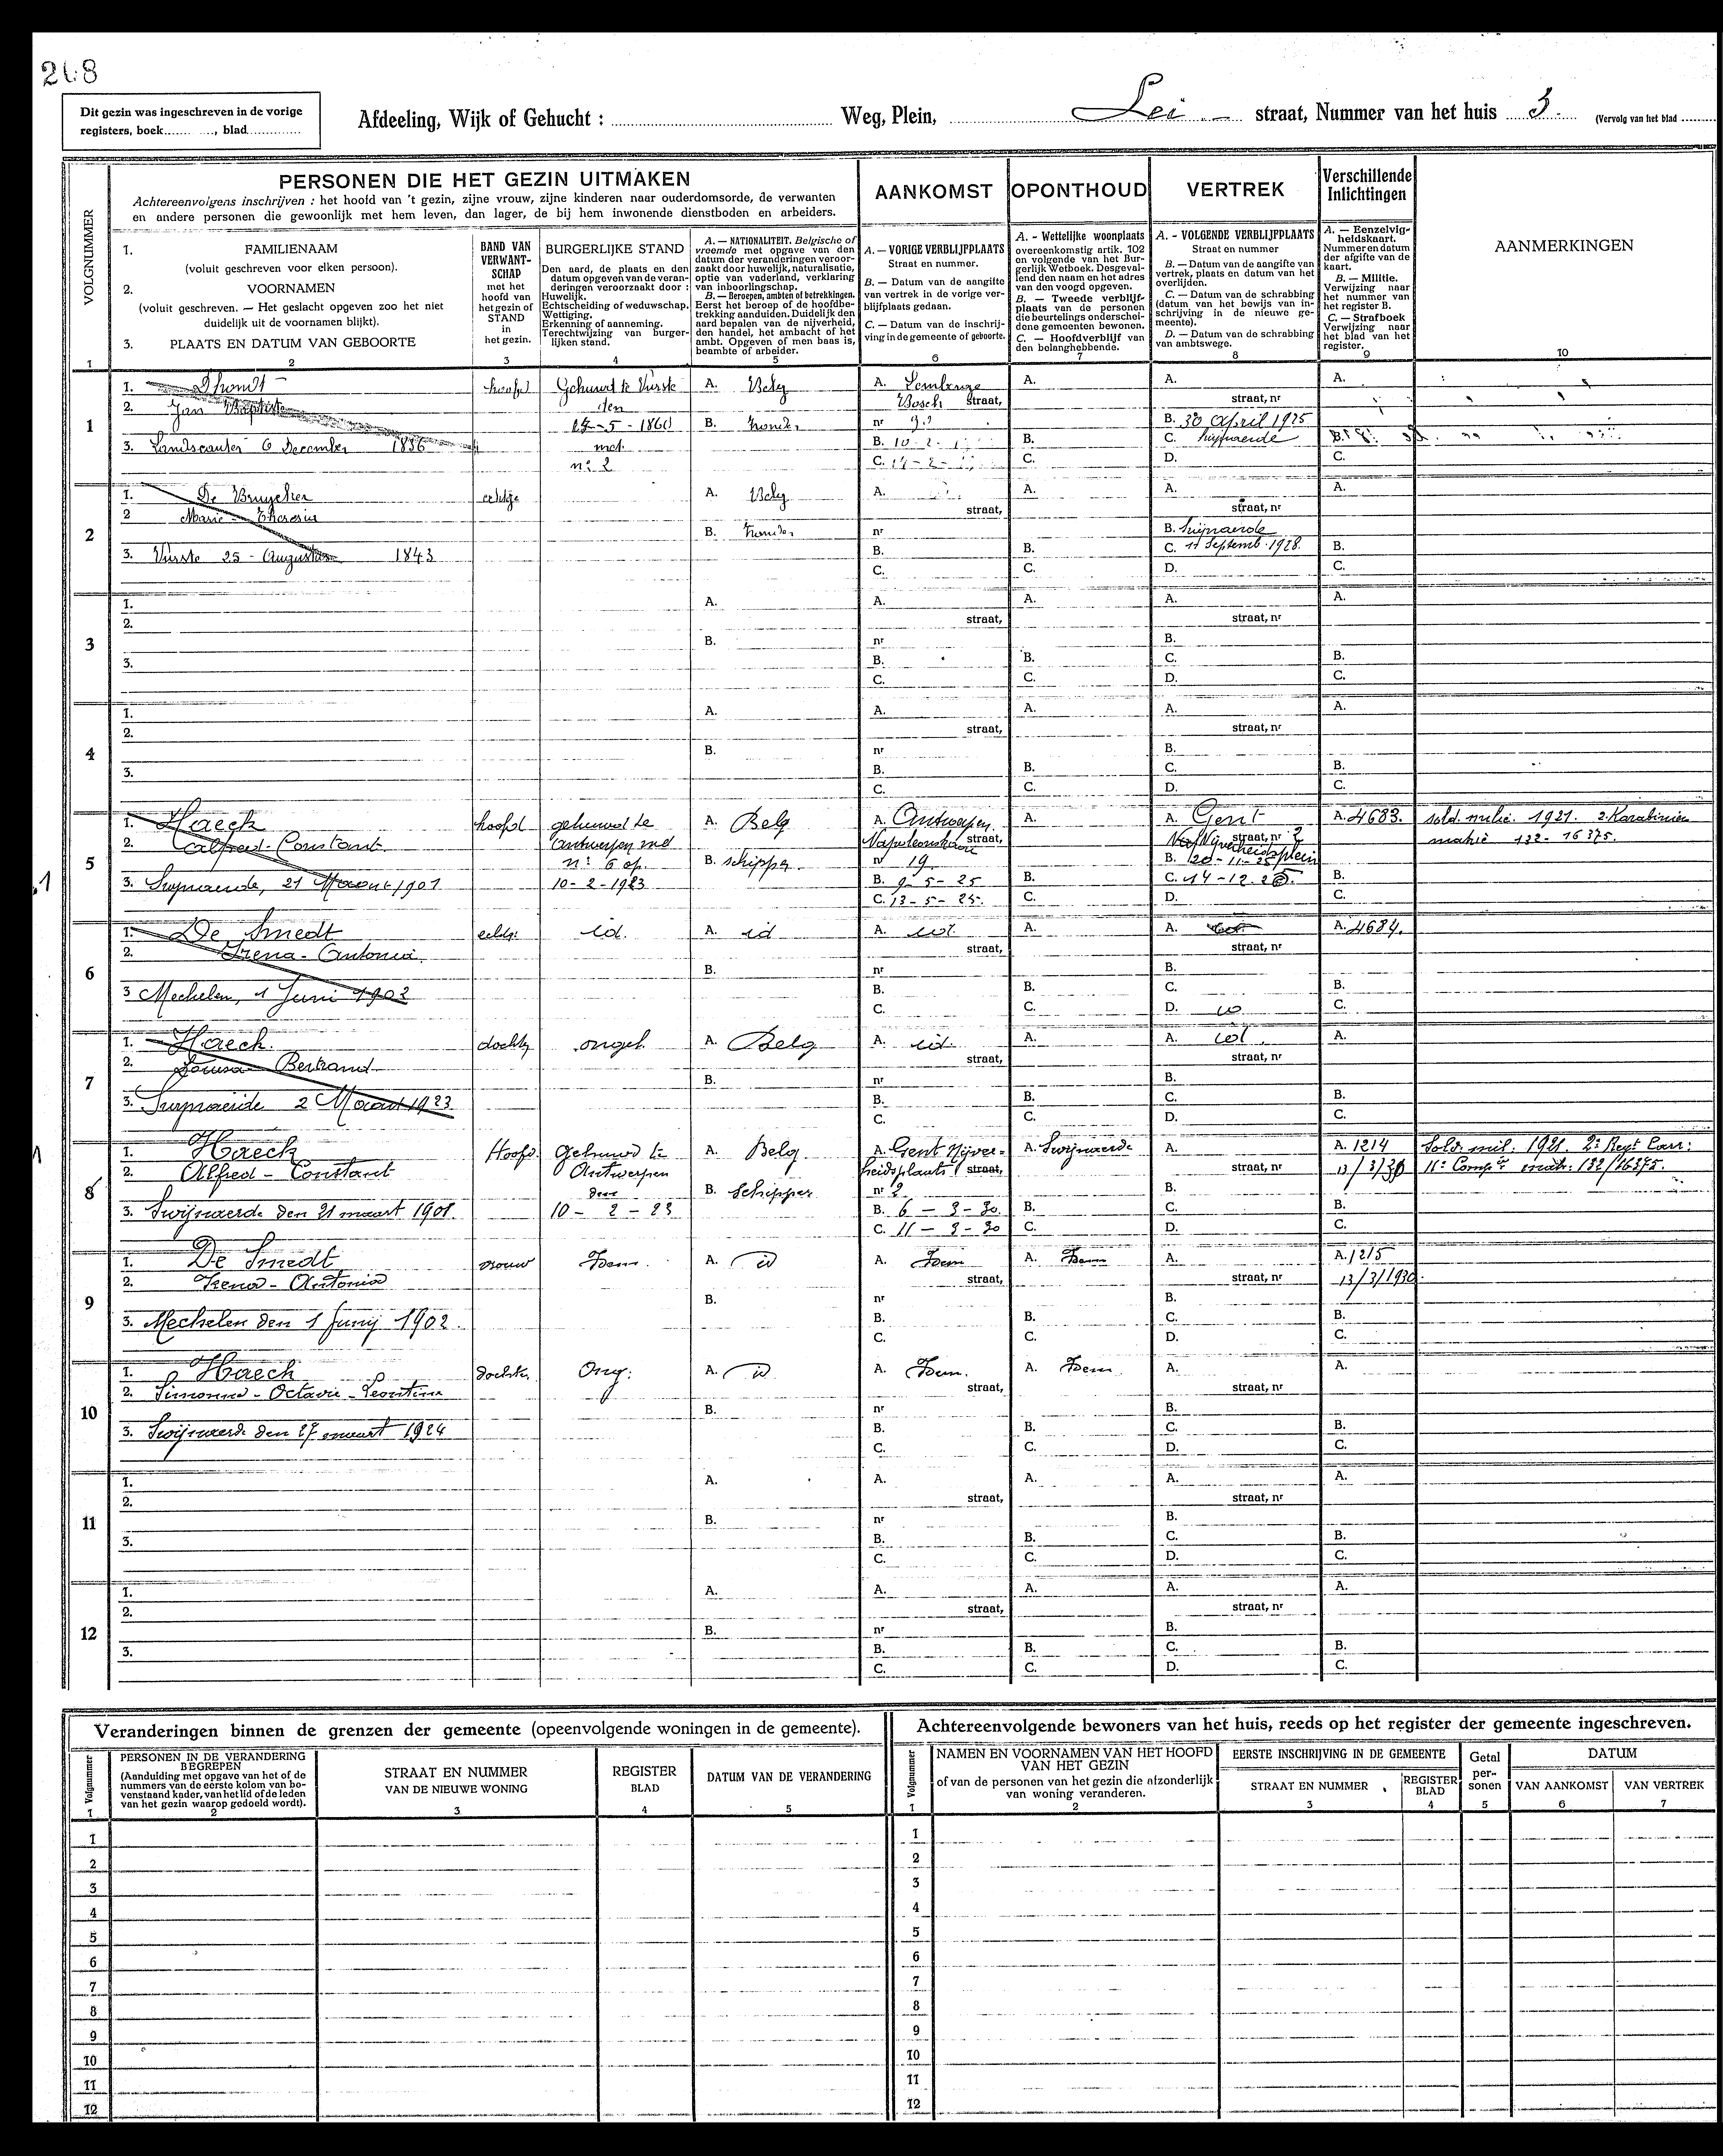 268
Dit gezin was ingeschreven in de vorige
registers, boek ......, blad ......
Afdeeling, Wijk of Gehucht : ...... Weg, Plein, Lei straat, Nummer van het huis 3. (Vervolg van het blad ......
PERSONEN DIE HET GEZIN UITMAKEN
Achtereenvolgens inschrijven : het hoofd van 't gezin, zijne vrouw, zijne kinderen naar ouderdomsorde, de verwanten
en andere personen die gewoonlijk met hem leven, dan lager, de bij hem inwonende dienstboden en arbeiders.
AANKOMST
OPONTHOUD
VERTREK
Verschillende
Inlichtingen
VOLGNUMMER
1
1. FAMILIENAAM
(voluit geschreven voor elken persoon).
2. VOORNAMEN
(voluit geschreven. — Het geslacht opgeven zoo het niet
duidelijk uit de voornamen blijkt).
3. PLAATS EN DATUM VAN GEBOORTE
2
BAND VAN
VERWANT-
SCHAP
met het
hoofd van
het gezin of
STAND
in
het gezin.
3
BURGERLIJKE STAND
Den aard, de plaats en den
datum opgeven van de veran-
deringen veroorzaakt door :
Huwelijk.
Echtscheiding of weduwschap.
Wettiging.
Erkenning of aanneming.
Terechtwijzing van burger-
lijken stand.
4
A. — NATIONALITEIT. Belgische of
vreemde met opgave van den
datum der veranderingen veroor-
zaakt door huwelijk, naturalisatie,
optie van vaderland, verklaring
van inboorlingschap.
B. — Beroepen, ambten of betrekkingen.
Eerst het beroep of de hoofdbe-
trekking aanduiden. Duidelijk den
aard bepalen van de nijverheid,
den handel, het ambacht of het
ambt. Opgeven of men baas is,
beambte of arbeider.
5
A. — VORIGE VERBLIJFPLAATS
Straat en nummer.
B. — Datum van de aangifte
van vertrek in de vorige ver-
blijfplaats gedaan.
C. — Datum van de inschrij-
ving in de gemeente of geboorte.
6
A. - Wettelijke woonplaats
overeenkomstig artik. 102
en volgende van het Bur-
gerlijk Wetboek. Desgeval-
lend den naam en het adres
van den voogd opgeven.
B. — Tweede verblijf-
plaats van de personen
die beurtelings onderschei-
dene gemeenten bewonen.
C. — Hoofdverblijf van
den belanghebbende.
7
A. - VOLGENDE VERBLIJFPLAATS
Straat en nummer
B. — Datum van de aangifte van
vertrek, plaats en datum van het
overlijden.
C. — Datum van de schrabbing
(datum van het bewijs van in-
schrijving in de nieuwe ge-
meente).
D. — Datum van de schrabbing
van ambtswege.
8
A. — Eenzelvig-
heidskaart.
Nummer en datum
der afgifte van de
kaart.
B. — Militie.
Verwijzing naar
het nummer van
het register B.
C. — Strafboek
Verwijzing naar
het blad van het
register.
9
AANMERKINGEN
10
1
1. Dhondt hoofd Gehuwd te Vurste A. Belg A. A. A. A.
2. Jan Baptiste den Bosch straat, straat, nr
-5-186 B. nr B. 30 April 1925
3. 6 December 1836 met B. 10-2- B. C. B.
n: 2 C. 14-2- C. D. C.
2
1. De Bruycker A. Belg A. A. A. A.
2 Marie - Theresia straat, straat, nr
B. nr B.
3. Vurste 25 - Augustus 1843 B. B. C. 11 Septemb. 1928. B.
C. C. D. C.
3
1. A. A. A. A. A.
2. straat, straat, nr
B. nr B.
3. B. B. C. B.
C. C. D. C.
4
1. A. A. A. A. A.
2. straat, straat, nr
B. nr B.
3. B. B. C. B.
C. C. D. C.
5
1. Haeck hoofd gehuwd te A. Belg A. Antwerpen. A. A. Gent A. 4683. sold. milic. 1921. 2. Karabinier
2. Alfred - Constant Antwerpen met straat, Nijverheidsplein straat, nr 2 132 - 16375.
n: 6 op. B. schipper. nr 19. B. 20-11-25
3. 21 Maart 1901 10-2-1923 B. 9-5-25 B. C. 14-12-25. B.
C. 13-5-25. C. D. C.
6
1. De Smedt echtg. id. A. id A. id. A. A. A. 4684.
2. Irena - Antonia. straat, straat, nr
B. nr B.
3 Mechelen, 1 Juni 1902 B. B. C. B.
C. C. D. C.
7
1. Haeck. ongeh. A. Belg A. id. A. A. id. A.
2. Louisa Bertrand straat, straat, nr
B. nr B.
3. 2 Maart 1923. B. B. C. B.
C. C. D. C.
8
1. Haeck Hoofd gehuwd te A. Belg A. Gent Nijver= A. Swijnaerde A. A. 1214 Sold. mil. 1921. 2e Regt Carr:
2. Alfred - Constant Antwerpen heidsplaats straat, straat, nr 13/3/30 11e Compie matr. 132/16375.
den B. Schipper nr 2 B.
3. Swijnaerde den 21 maart 1901. 10-2-23 B. 6-3-30 B. C. B.
C. 11-3-30 C. D. C.
9
1. De Smedt vrouw Idem. A. id A. Idem A. Idem A. A. 1215
2. Irena - Antonia straat, straat, nr 13/3/1930.
B. nr B.
3. Mechelen den 1 Junij 1902. B. B. C. B.
C. C. D. C.
10
1. Haeck dochter Ong: A. id A. Idem. A. Idem A. A.
2. Simonna - Octavie - Leontina straat, straat, nr
B. nr B.
3. Swijnaerde den 27 maart 1924 B. B. C. B.
C. C. D. C.
11
1. A. A. A. A. A.
2. straat, straat, nr
B. nr B.
3. B. B. C. B.
C. C. D. C.
12
1. A. A. A. A. A.
2. straat, straat, nr
B. nr B.
3. B. B. C. B.
C. C. D. C.
Veranderingen binnen de grenzen der gemeente (opeenvolgende woningen in de gemeente).
Volgnummer
1
PERSONEN IN DE VERANDERING
BEGREPEN
(Aanduiding met opgave van het of de
nummers van de eerste kolom van bo-
venstaand kader, van het lid of de leden
van het gezin waarop gedoeld wordt).
2
STRAAT EN NUMMER
VAN DE NIEUWE WONING
3
REGISTER
BLAD
4
DATUM VAN DE VERANDERING
5
1
2
3
4
5
6
7
8
9
10
11
12
Achtereenvolgende bewoners van het huis, reeds op het register der gemeente ingeschreven.
Volgnummer
1
NAMEN EN VOORNAMEN VAN HET HOOFD
VAN HET GEZIN
of van de personen van het gezin die afzonderlijk
van woning veranderen.
2
EERSTE INSCHRIJVING IN DE GEMEENTE
STRAAT EN NUMMER
3
REGISTER
BLAD
4
Getal
per-
sonen
5
DATUM
VAN AANKOMST
6
VAN VERTREK
7
1
2
3
4
5
6
7
8
9
10
11
12